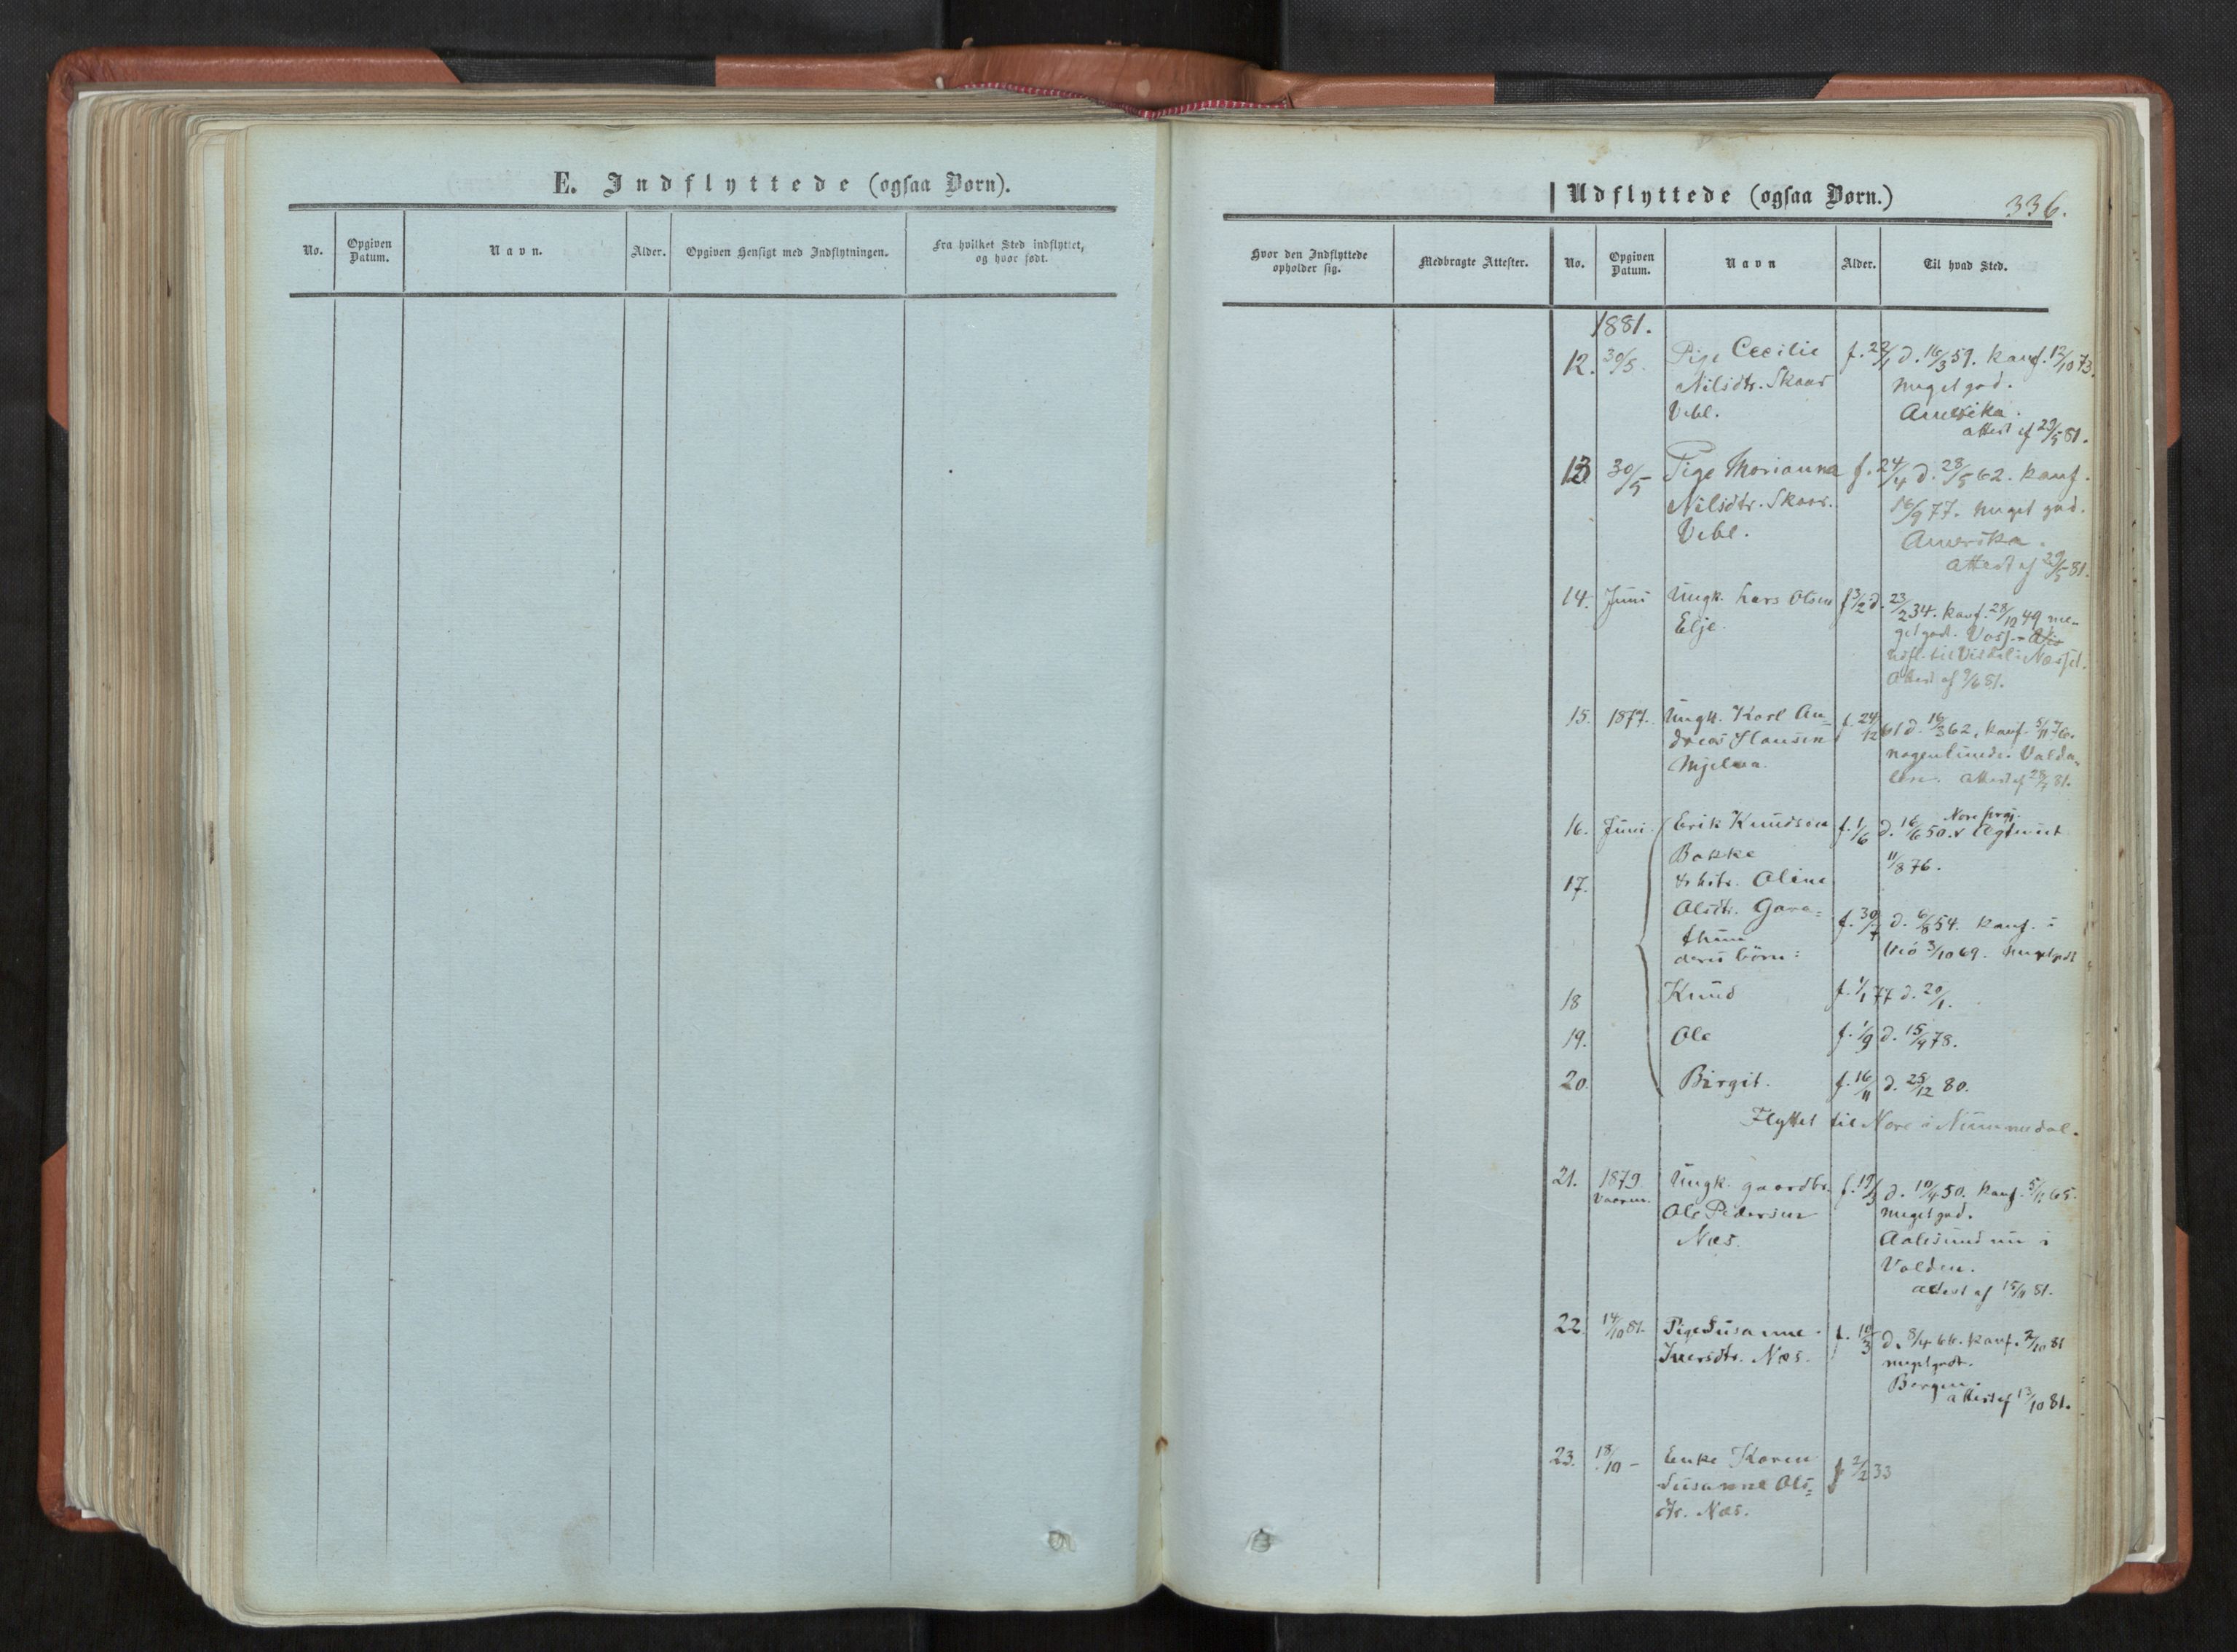 E. Indflyttede (ogsaa Børn).
No.
Opgiven
Datum.
Navn.
Alder.
Opgiven Hensigt med Indflytningen.
Fra hvilket Sted indflyttet,
og hvor født.
Udflyttede (ogsaa Børn.)
336.
Hvor den Indflyttede
opholder sig.
Medbragte Attester.
No.
Opgiven
Datum.
Navn
Alder.
Til hvad Sted.
1881.
12. 30/5. Pige Cecilie f. 22/1 d. 16/3 59. konf. 12/10 73.
Nilsdtr. Skaar meget god.
Vebl. Amerika.
attest af 29/5 81.
13 30/5 Pige Marianna f. 24/4 d. 28/5 62. konf.
Nilsdtr. Skaar. 16/9 77. meget god.
Vebl. Amerika.
attest af 29/5 81.
14. Juni Ungk. Lars Olsen f 3/2 d. 23/2 34. konf. 28/10 49 me-
Elje. get god. Voss.
udfl. til Næsset.
Attest af 9/6 81.
15. 1877. Ungk. Karl An- f. 24/12 61 d. 16/3 62, konf. 5/11 76.
dreas Hansen nogenlunde. Valda-
Mjelva. len. attest af 28/7 81.
16. Juni. Erik Knudsen f. 1/6 d. 16/6 50. Nore prgj. Ægteviet
Bakke 11/8 76.
17. & hstr. Oline
Olsdtr. Gara= f. 30/7 d. 6/8 54. konf. i
thun Veø 3/10 69. meget godt
deres børn:
18 Knud f. 1/1 77 d. 20/1.
19. Ole f. 1/9 d. 15/9 78.
20. Birgit. f. 16/11 d. 25/12 80.
Flyttet til Nore i Nummedal.
21. 1879 Ungk. gaardbr. f. 19/3 d. 10/4 50. konf. 5/11 65.
Vaaren. Ole Pedersen meget god.
Næs. Aalesund nu i
Volden.
attest af 15/9 81.
22. 14/10 81. Pige Susanne f. 10/3 d. 8/4 66. konf. 2/10 81
Iversdtr. Næs. meget godt.
Bergen.
attest af 13/10 81.
23. 18/10 - Enke Karen f 2/2 33
Susanne Ols=
dtr. Næs.